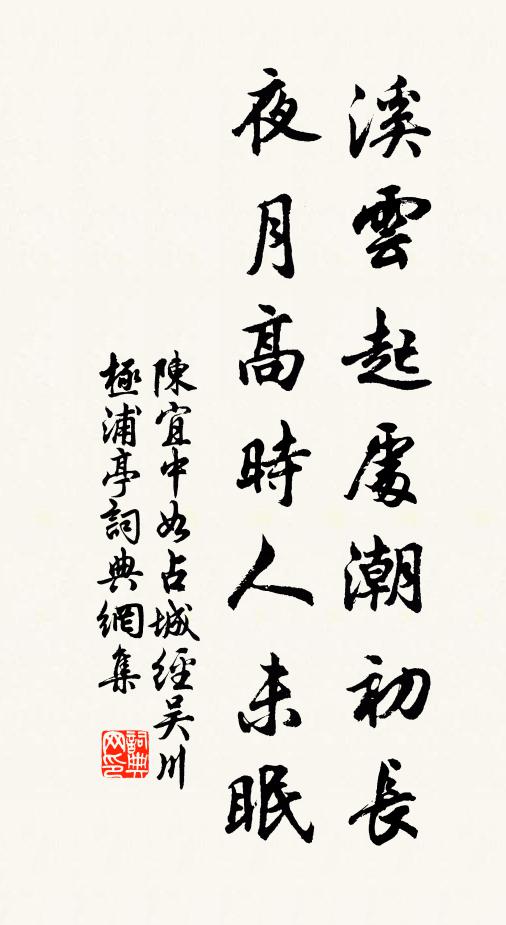 溪雲起處潮初長
夜月高時人未眠
陳宜中如占城經吳川
極浦亭詞典網集
詞典網印